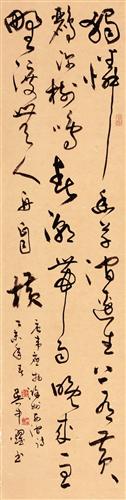 獨憐幽草澗邊生上有黃
鸝深樹鳴春潮帶雨晚來急
野渡無人舟自橫
唐韋應物滁州西澗詩